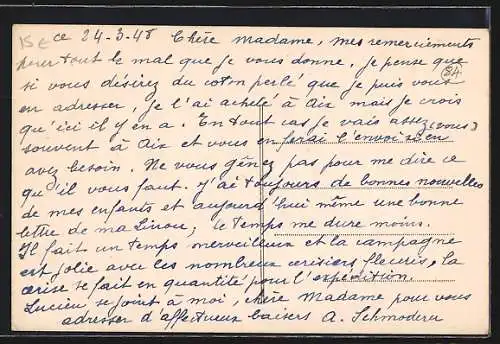 15 €
ce 24-3-48 Chère Madame, mes remerciements
pour tout le mal que je vous donne, je pense que
84
si vous désirez du coton perlé que je puis vous
en adresser, je l'ai acheté à Aix mais je crois
qu'ici il y en a. En tout cas je vais assez
souvent à Aix et vous en ferai l'envoi si en (vous)
avez besoin. Ne vous gênez pas pour me dire ce
qu'il vous faut. J'ai toujours de bonnes nouvelles
de mes enfants et aujourd'hui même une bonne
lettre de ma Linou; le temps me dure moins.
Il fait un temps merveilleux et la campagne
est jolie avec les nombreux cerisiers fleuris, la
cerise se fait en quantité pour l'expédition.
Lucien se joint à moi, chère Madame pour vous
adresser d'affectueux baisers A. Schmoderer